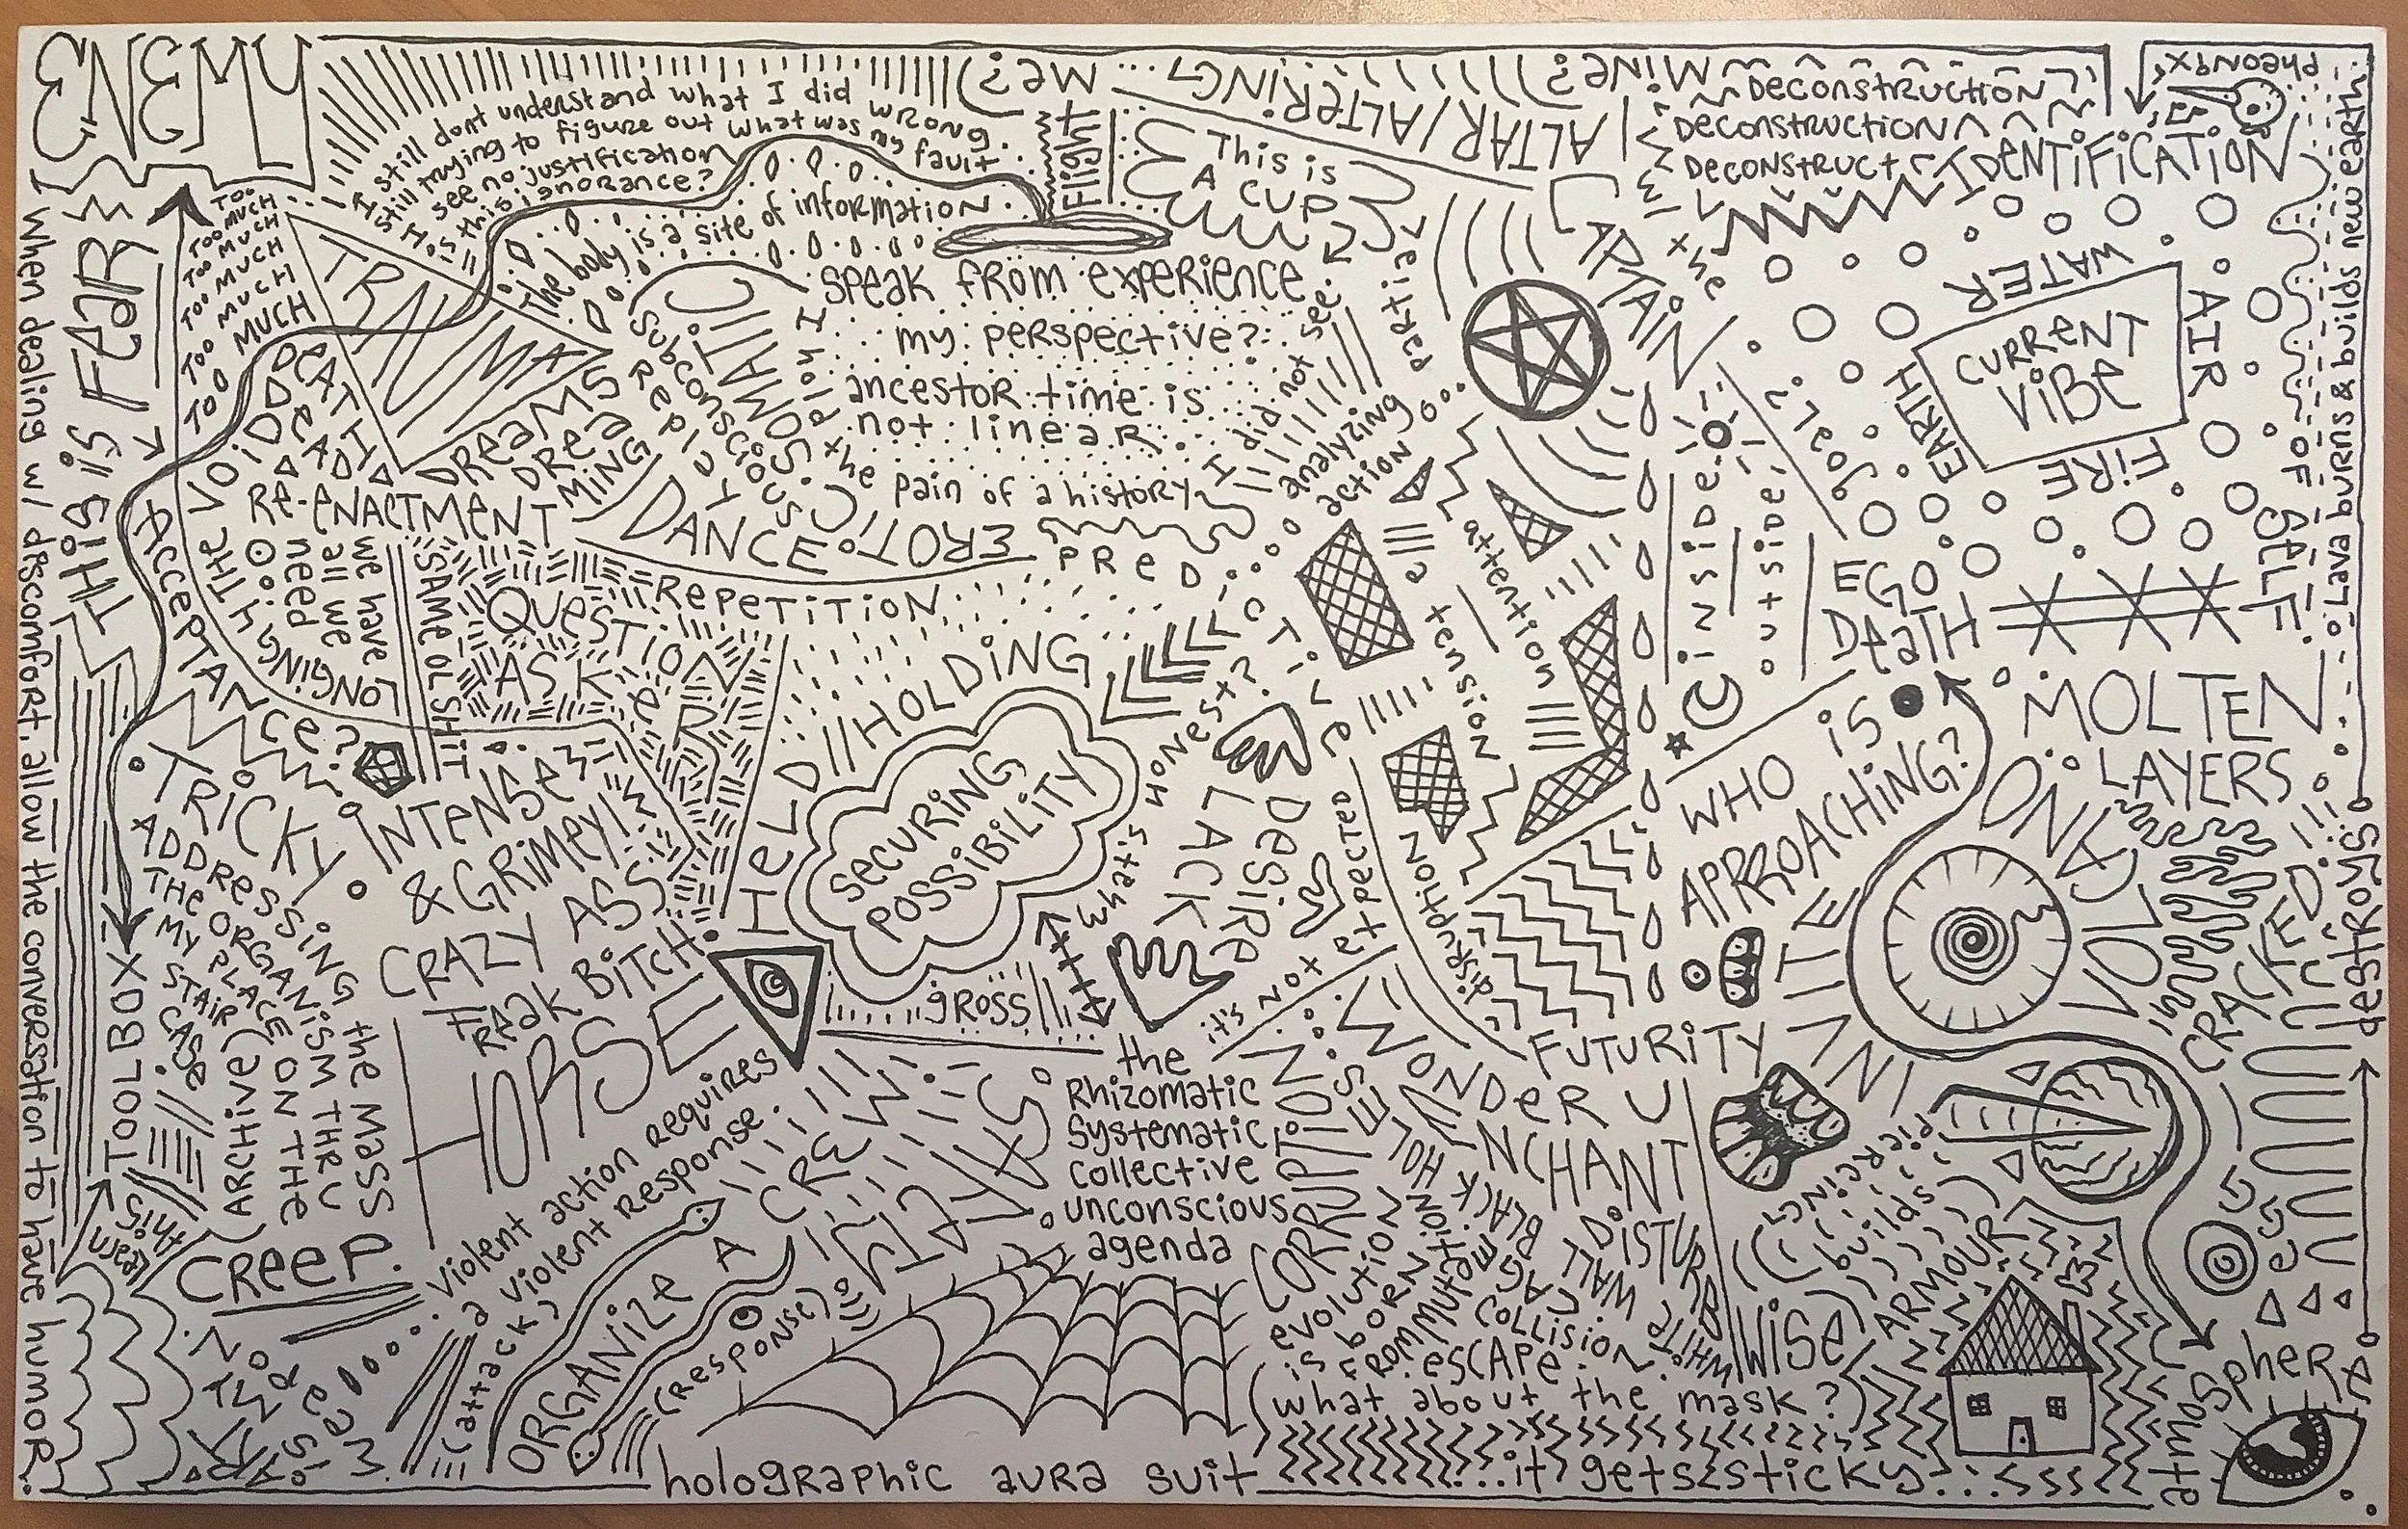 ENEMY
THIS iS FEAR
When dealing w/ discomfort, allow the conversation to have humor.
I still dont understand what I did wrong.
Still trying to figure out what was my fault
I see no justification
H is this ignorance?
Too
TOO MUCH
TOO MUCH
TOO MUCH
TOO MUCH
TOO MUCH
TOO MUCH
TRAUMA
The body is a site of information
Flight
me?
ALTAR/ALTERING...
Mine?
This is
A CUP
DeconstRuction
Deconstruction
Deconstruct
IDENTIFICATION
pheonix
Lava burns & builds new earth
destroys
SPEAK FROM EXPERIENCE
my perspective?
ancestor time is
not linear
the pain of a history
I hold
I did not see
CLIMATIC
SUBCONSCIOUS
DREAMS
DREA
MING
DEATH
DEAD
THE VOiD
RE-ENACTMENT
LONGING
we have
all we
need
SAME OL SHIT
Acceptance?
DANCE
EROTIC
REPETITION
QUESTION
ASKER
PREDICTIVE
analyzing
action
attention
a tension
CAPTAIN
the
inside
outside
WATER
AIR
EARTH
FiRE
CURRENT
ViBE
OF SELF
EGO
DEATH
MOLTEN
LAYERS
VOLCANO
CRACKED
HELD//HOLDING
SECURING
POSSIBILITY
what's honest?
LACK
Desire
it's not expected
disruption
WHO iS
APPROACHiNG?
INVITE
FUTURiTY
TRICKY
INTENSE
& GRIMEY!
CRAZY ASS
FREAK BITCH
HORSE
ADDRESSING the MASS
THE ORGANISM THRU
MY PLACE ON THE
STAIR CASE
(ARCHIVE)
TOOLBOX
learn this
CREEP.
Violent action requires
a violent response.
(attack)
ORGANIZE A CREW
(Response)
SAFETY
gross
the
Rhizomatic
Systematic
collective
unconscious
agenda
CORRUPTION
WONDER U
ENCHANT
DISTURB
BLACK HOLES
WHITE WALL
evolution
is born
FROM mutation
COLLISION
ESCAPE
(what about the mask?)
Wise
PIERCING
(builds)
ARMOUR
atmosphere
holographic aura suit
... it gets sticky...